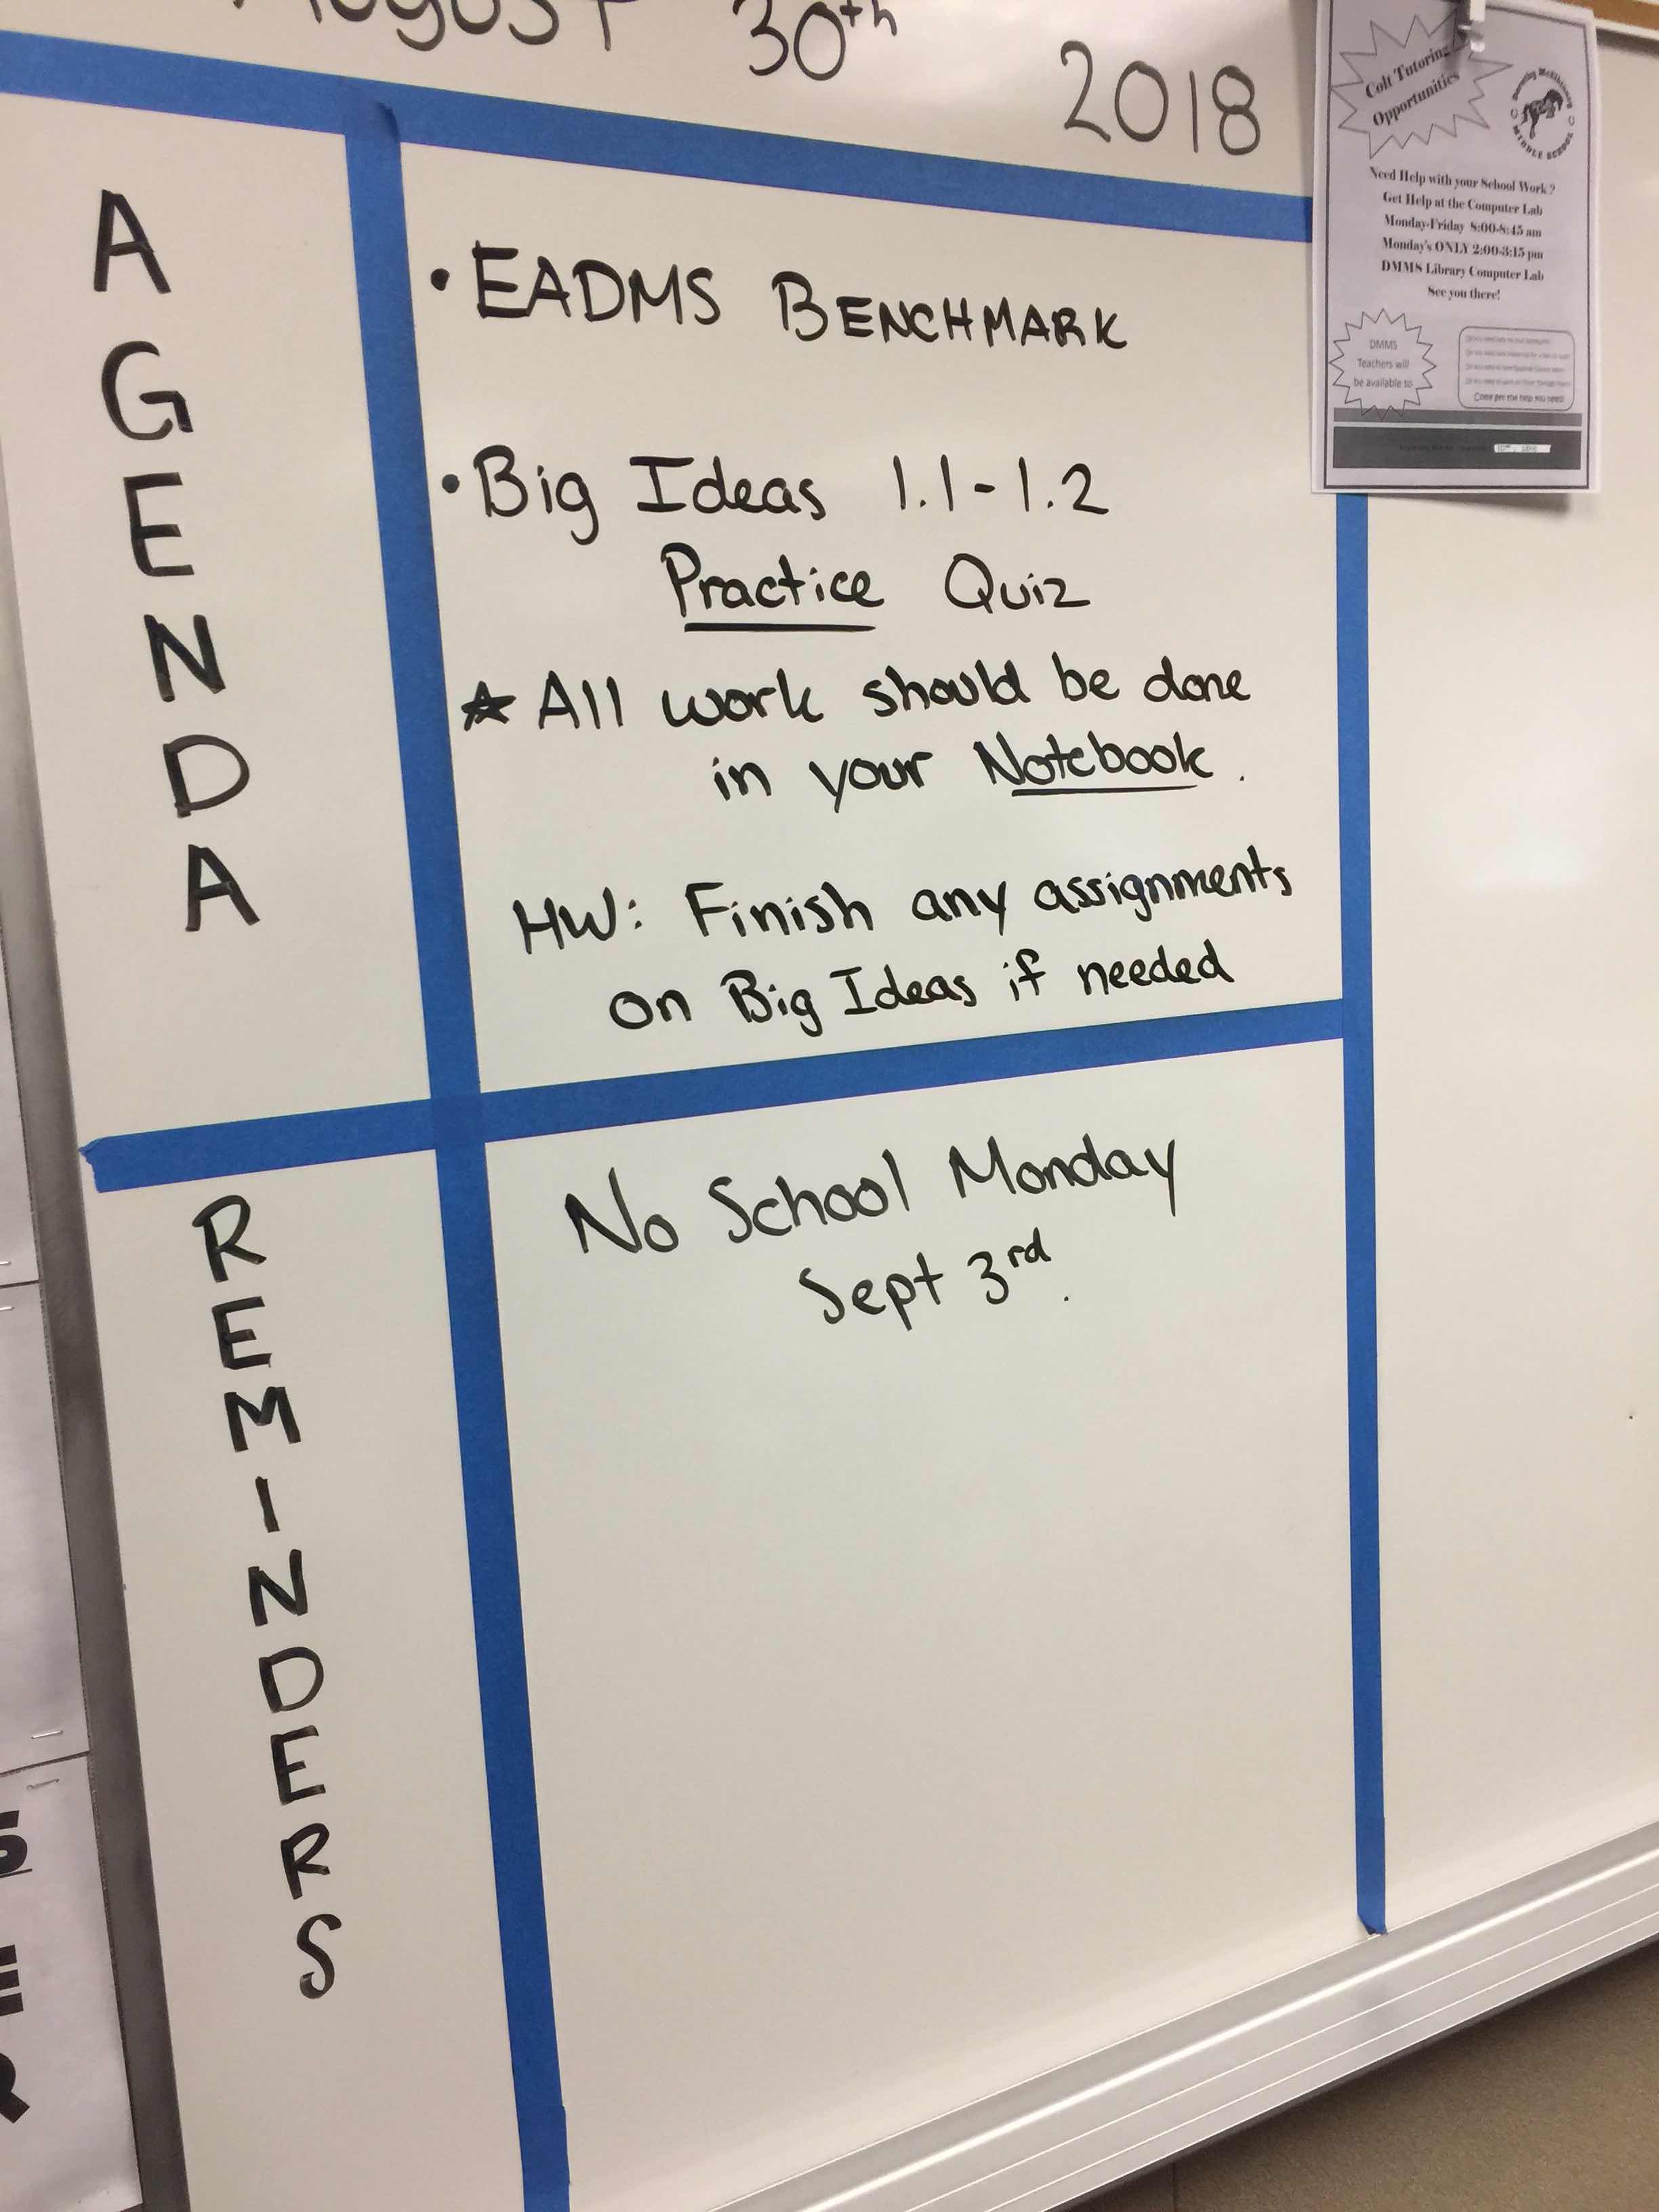 August 30th 2018
AGENDA
• EADMS BENCHMARK
• Big Ideas 1.1-1.2
Practice Quiz
★ All work should be done
in your Notebook.
HW: Finish any assignments
on Big Ideas if needed
REMINDERS
No School Monday
Sept 3rd.
Colt Tutoring
Opportunities
MIDDLE SCHOOL
Need Help with your School Work?
Get Help at the Computer Lab
Monday-Friday 8:00-8:45 am
Monday's ONLY 2:00-3:15 pm
DMMS Library Computer Lab
See you there!
DMMS
Teachers will
be available to
Come get the help you need!
S
E
R